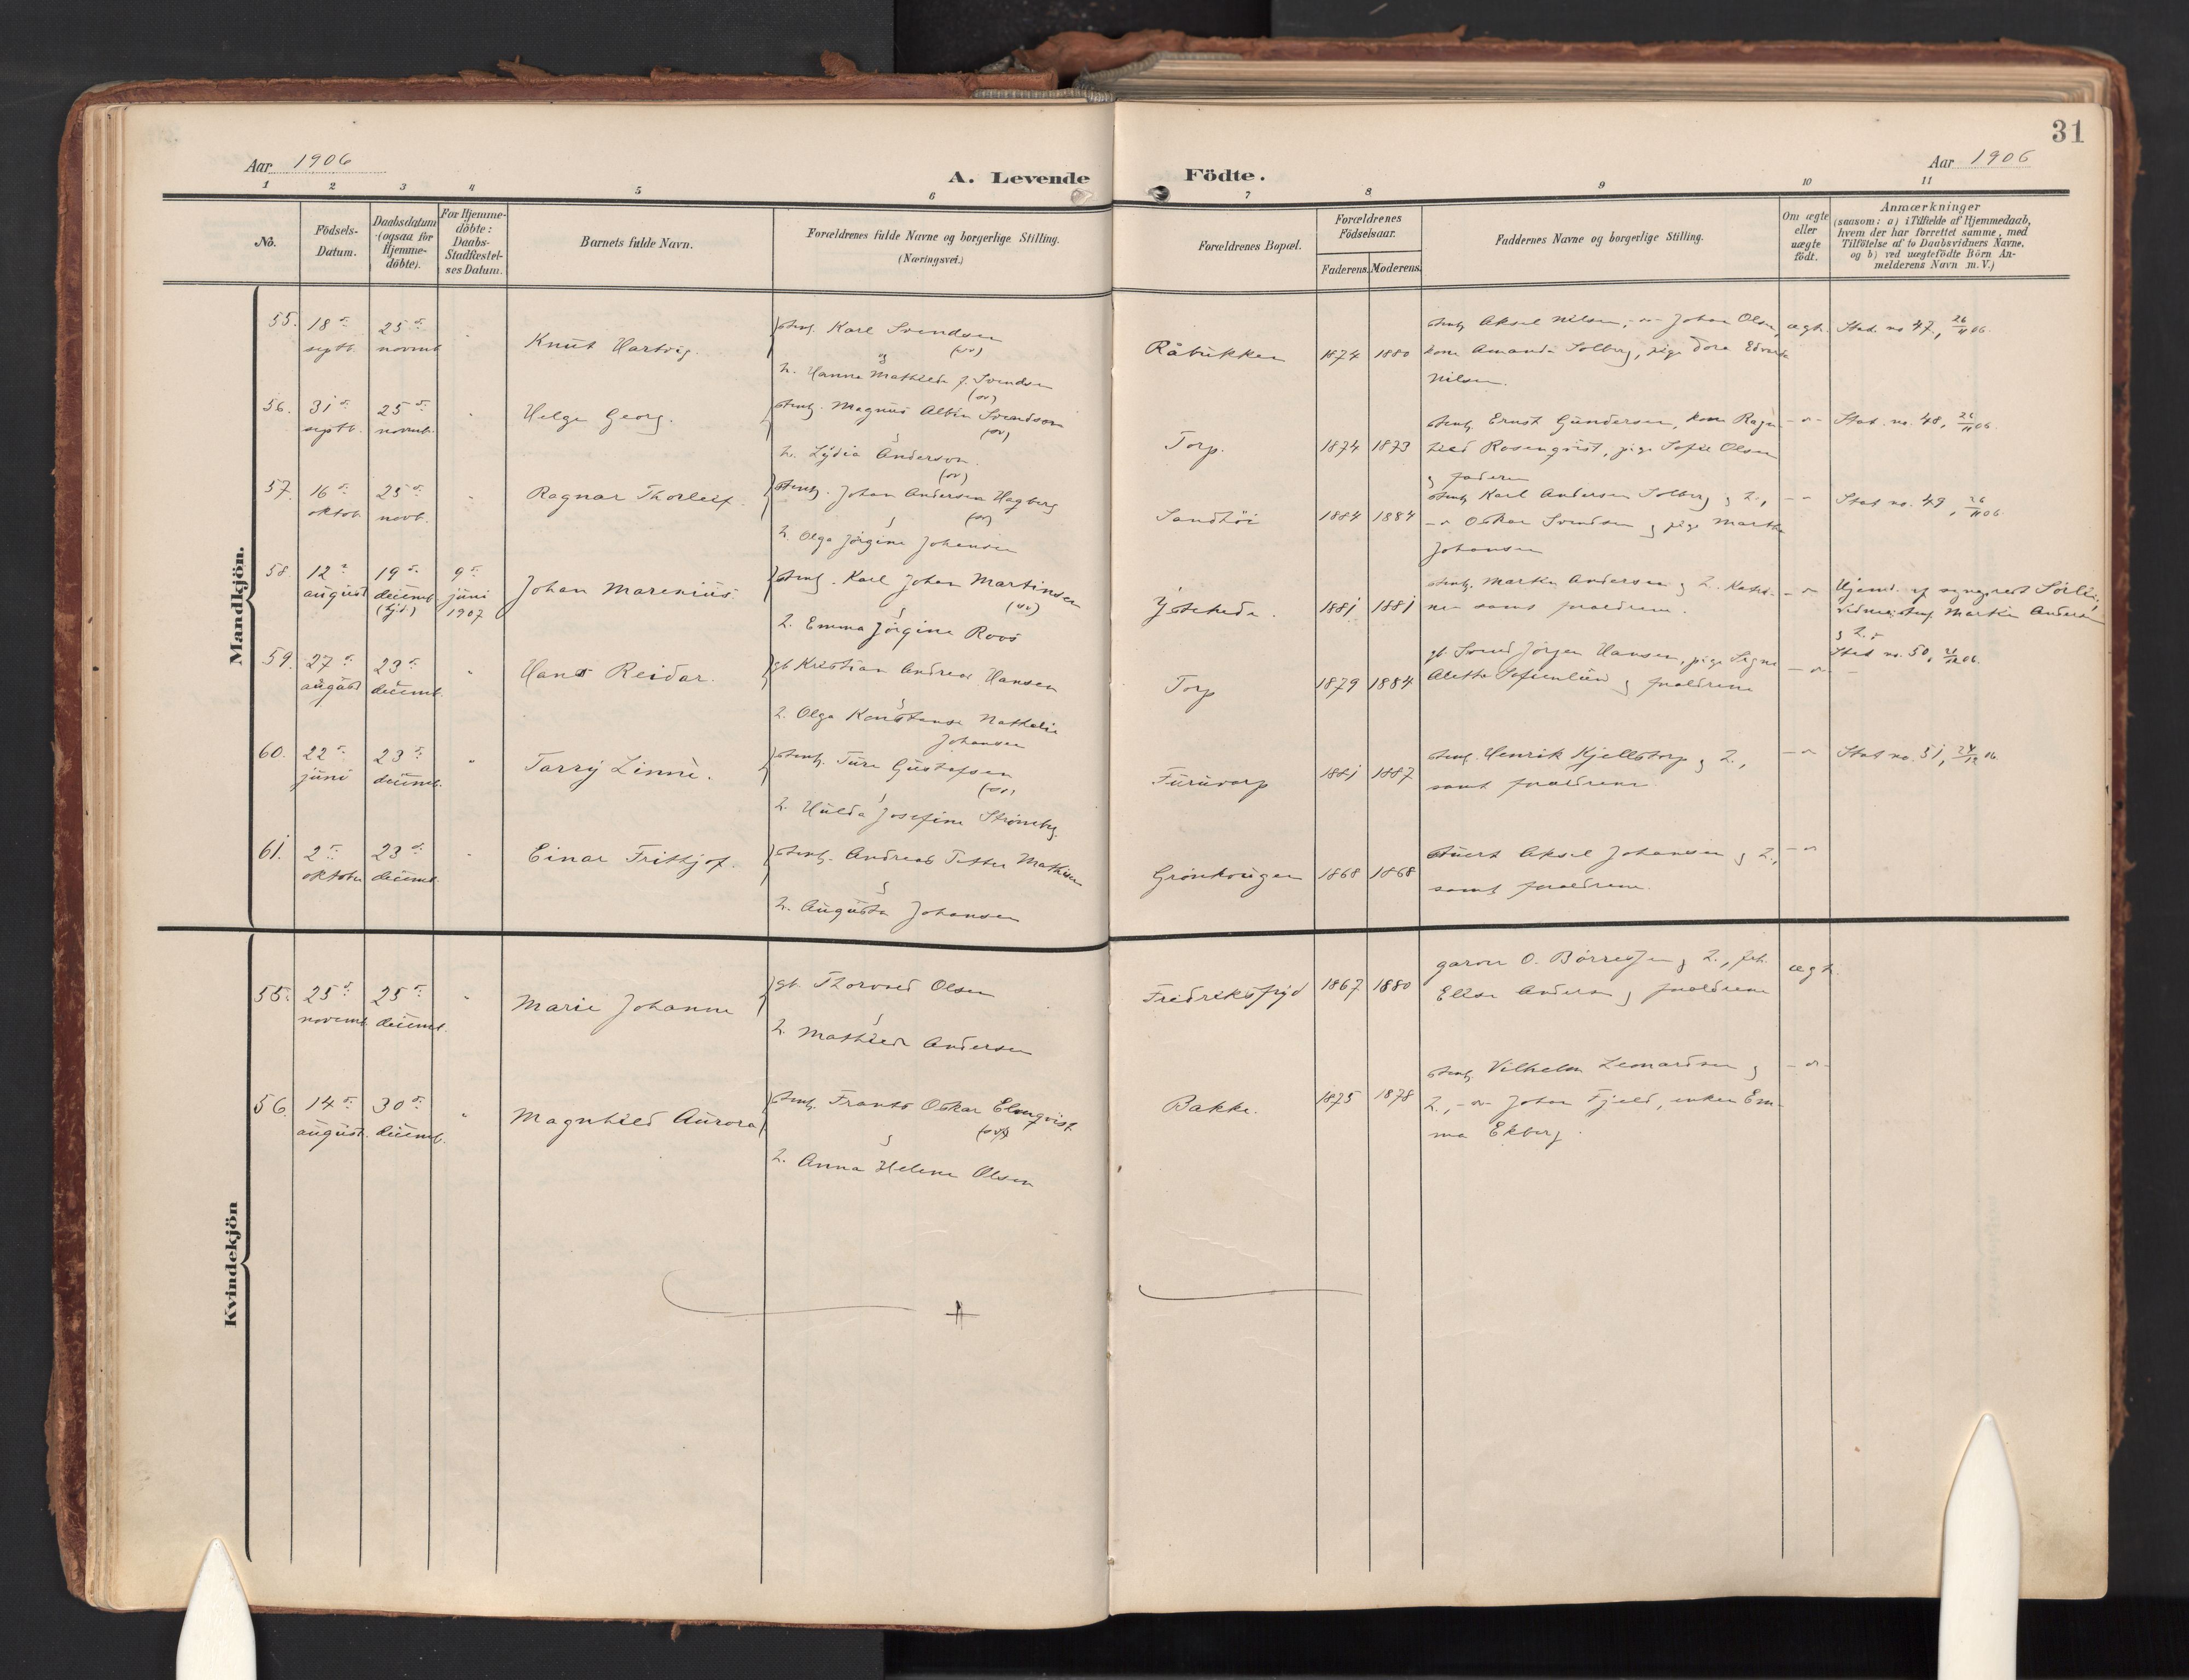 31
Aar 1906
Aar 1906
A. Levende
Födte.
1 2 3 4 5 6 7 8 9 10 11
No.
Födsels-
Datum.
Daabsdatum
(ogsaa for
Hjemme-
döbte).
For Hjemme-
döbte:
Daabs-
Stadfæstel-
ses Datum.
Barnets fulde Navn.
Forældrenes fulde Navne og borgerlige Stilling.
(Næringsvei.)
Forældrenes Bopæl.
Forældrenes
Födselsaar.
Faderens. Moderens.
Faddernes Navne og borgerlige Stilling.
Om ægte
eller
uægte
födt.
Anmærkninger
(saasom: a) i Tilfælde af Hjemmedaab,
hvem der har forrettet samme, med
Tilföielse af to Daabsvidners Navne,
og b) ved uægtefödte Börn An-
melderens Navn m. V.)
Mandkjön.
55. 18de septb. 25de novmb. " Knut Hartvig.
stenh. Karl Svendsen
(sv)
og
h. Hanna Mathilde f. Svendsen
(sv)
Råbukken 1874 1880
stenh. Aksel Nilsen, -"- Johan Olsen,
kone Amanda Solberg, pige Dora Edvarda
Nilsen.
ægt. Stat. no 47, 26/11 06.
56. 31te septb. 25de novmb. " Helge Georg.
stenh. Magnus Albin Svendson
(sv)
h. Lydia Anderson.
(sv)
Torp. 1874 1873
stenh. Ernst Gundersen, kone Ragn-
hild Rosenqvist, pige Sofie Olsen
og faderen
-"- Stat. no. 48, 26/11 06.
57. 16de oktob. 25de novb. " Ragnar Thorleif.
stenh. Johan Andersen Hagberg
(sv)
h. Olga Jörgine Johansen
Sandhöi 1884 1884
stenh Karl Andersen Solberg og h.,
-"- Oskar Svendsen og pige Martha
Johansen
-"- Stat. no. 49, 26/11 06.
58. 12te august 19de decemb. (hjd.) 9de juni 1907 Johan Marenius.
stenh. Karl Johan Martinsen
(sv)
h. Emma Jörgine Roos
1881 1881
stenh. Martin Andersen og h. Katri-
ne samt forældrene.
-"- Hjemd. af
Martin Andersen
og h.
59. 27de august 23de decemb. " Hans Reidar.
gb. Kristian Andreas Hansen
h. Olga Konstanse Nathalie
Johansen
Torp 1879 1884
gb. Svend Jörgen Hansen, pige Signe
Alette Sofienlund og forældrene
-"- Stat no. 50, 21/12 06.
60. 22de juni 23de decemb. " Tarry Linné.
stenh. Ture Gustafsen
(sv)
h. Hulda Josefine Strömberg.
Furutorp 1881 1887
stenh. Henrik Kjellstorp og h.,
samt forældrene
-"- Stat no. 51, 24/12 06.
61. 2de oktober 23de decemb. " Einar Frithjof.
stenh. Andreas Petter Mathisen
og
h. Augusta Johansen
Grönkougen 1868 1868
Aksel Johansen og h.,
samt forældrene.
-"-
Kvindekjön
55. 25de novemb. 25de decemb. " Marie Johanne
gb. Thorvald Olsen
h. Mathilde Andersen
Fredriksfryd 1867 1880
garver O. Börresen og h., frk.
Elise Andersen og forældrene
ægt.
56. 14de august. 30te decemb. " Magnhild Aurora
stenh. Frants Oskar Elmqvist
(sv)
og
h. Anna Helene Olsen
Bakke. 1875 1878
stenh. Vilhelm Leonardsen og
h., -"- Johan Fjeld, enken Em-
ma Ekberg.
-"-